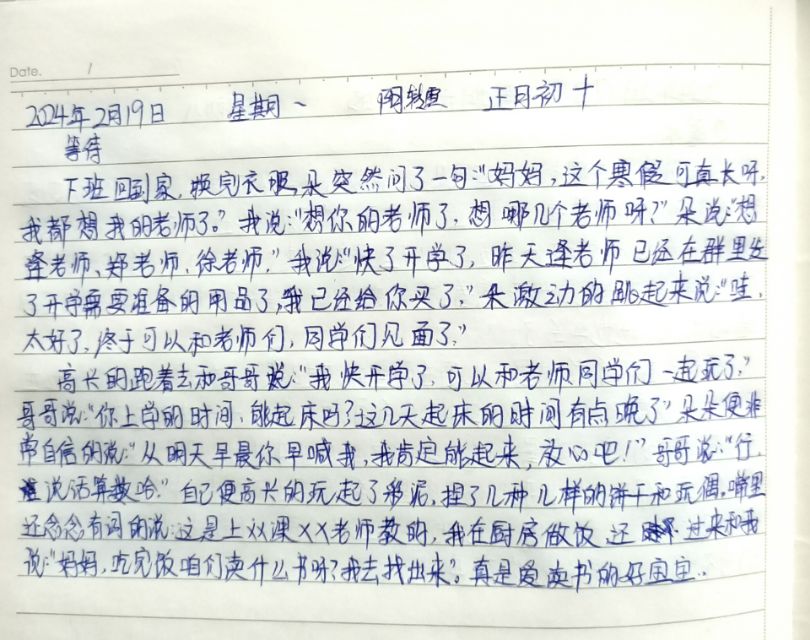 Date. /
2024年2月19日 星期一 阴转雪 正月初十
等待
下班回到家,换完衣服,朵突然问了一句:"妈妈,这个寒假可真长呀,
我都想我的老师了。"我说:"想你的老师了,想哪几个老师呀?"朵说:"想
逄老师、郑老师、徐老师,"我说:"快了开学了,昨天逄老师已经在群里发
了开学需要准备的用品了,我已经给你买了,"朵激动的跳起来说:"哇,
太好了,终于可以和老师们,同学们见面了,"
高兴的跑着去和哥哥说:"我快开学了,可以和老师同学们一起玩了,"
哥哥说:"你上学的时间,能起床吗?这几天起床的时间有点晚了"朵朵便非
常自信的说:"从明天早晨你早喊我,我肯定能起来,放心吧!"哥哥说:"行,
说话算数哈,"自己便高兴的玩起了彩泥,捏了几种几样的饼干和玩偶,嘴里
还念念有词的说:这是上××课××老师教的,我在厨房做饭,还过来和我
说:"妈妈,吃完饭咱们读什么书呀?我去找出来"。真是爱读书的好宝宝..